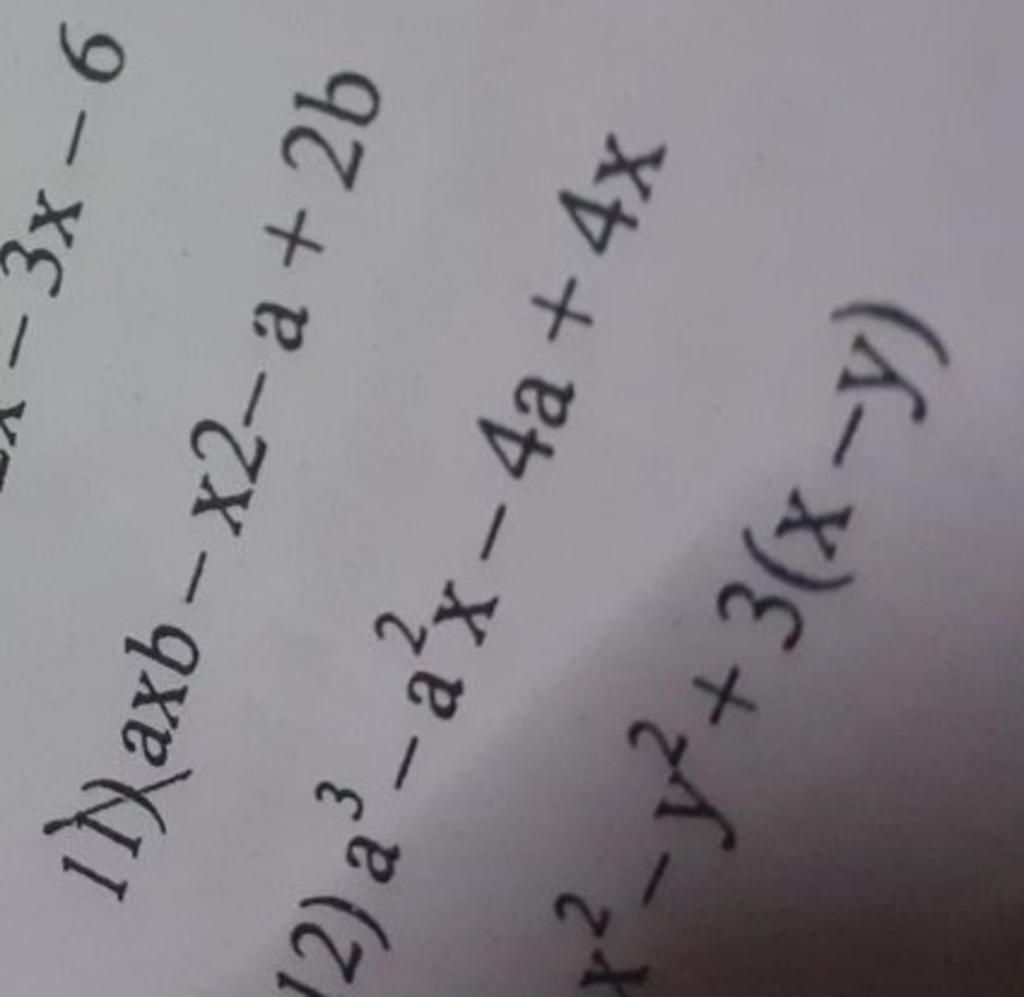 x – 3x – 6
11) axb – x2– a + 2b
12) a³ – a²x – 4a + 4x
x² – y² + 3(x –y)